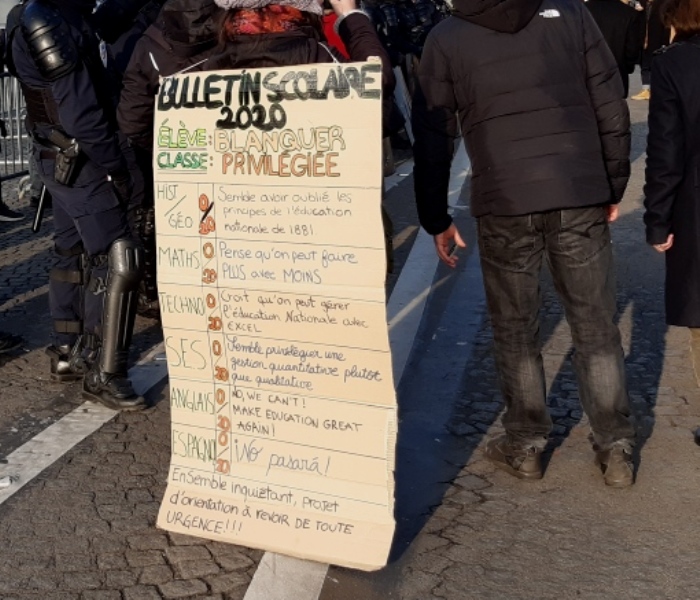 BULLETIN SCOLAIRE
2020
ÉLÈVE: BLANQUER
CLASSE: PRIVILÉGIÉE
HIST/GÉO 0/20 Semble avoir oublié les
principes de l'éducation
nationale de 1881
MATHS 0/20 Pense qu'on peut faire
PLUS avec MOINS
TECHNO 0/20 Croit qu'on peut gérer
l'éducation Nationale avec
EXCEL
SES 0/20 Semble privilégier une
gestion quantitative plutôt
que qualitative
ANGLAIS 0/20 NO, WE CAN'T!
MAKE EDUCATION GREAT
AGAIN!
ESPAGNOL 0/20 ¡No pasará!
Ensemble inquiétant, projet
d'orientation à revoir DE TOUTE
URGENCE!!!